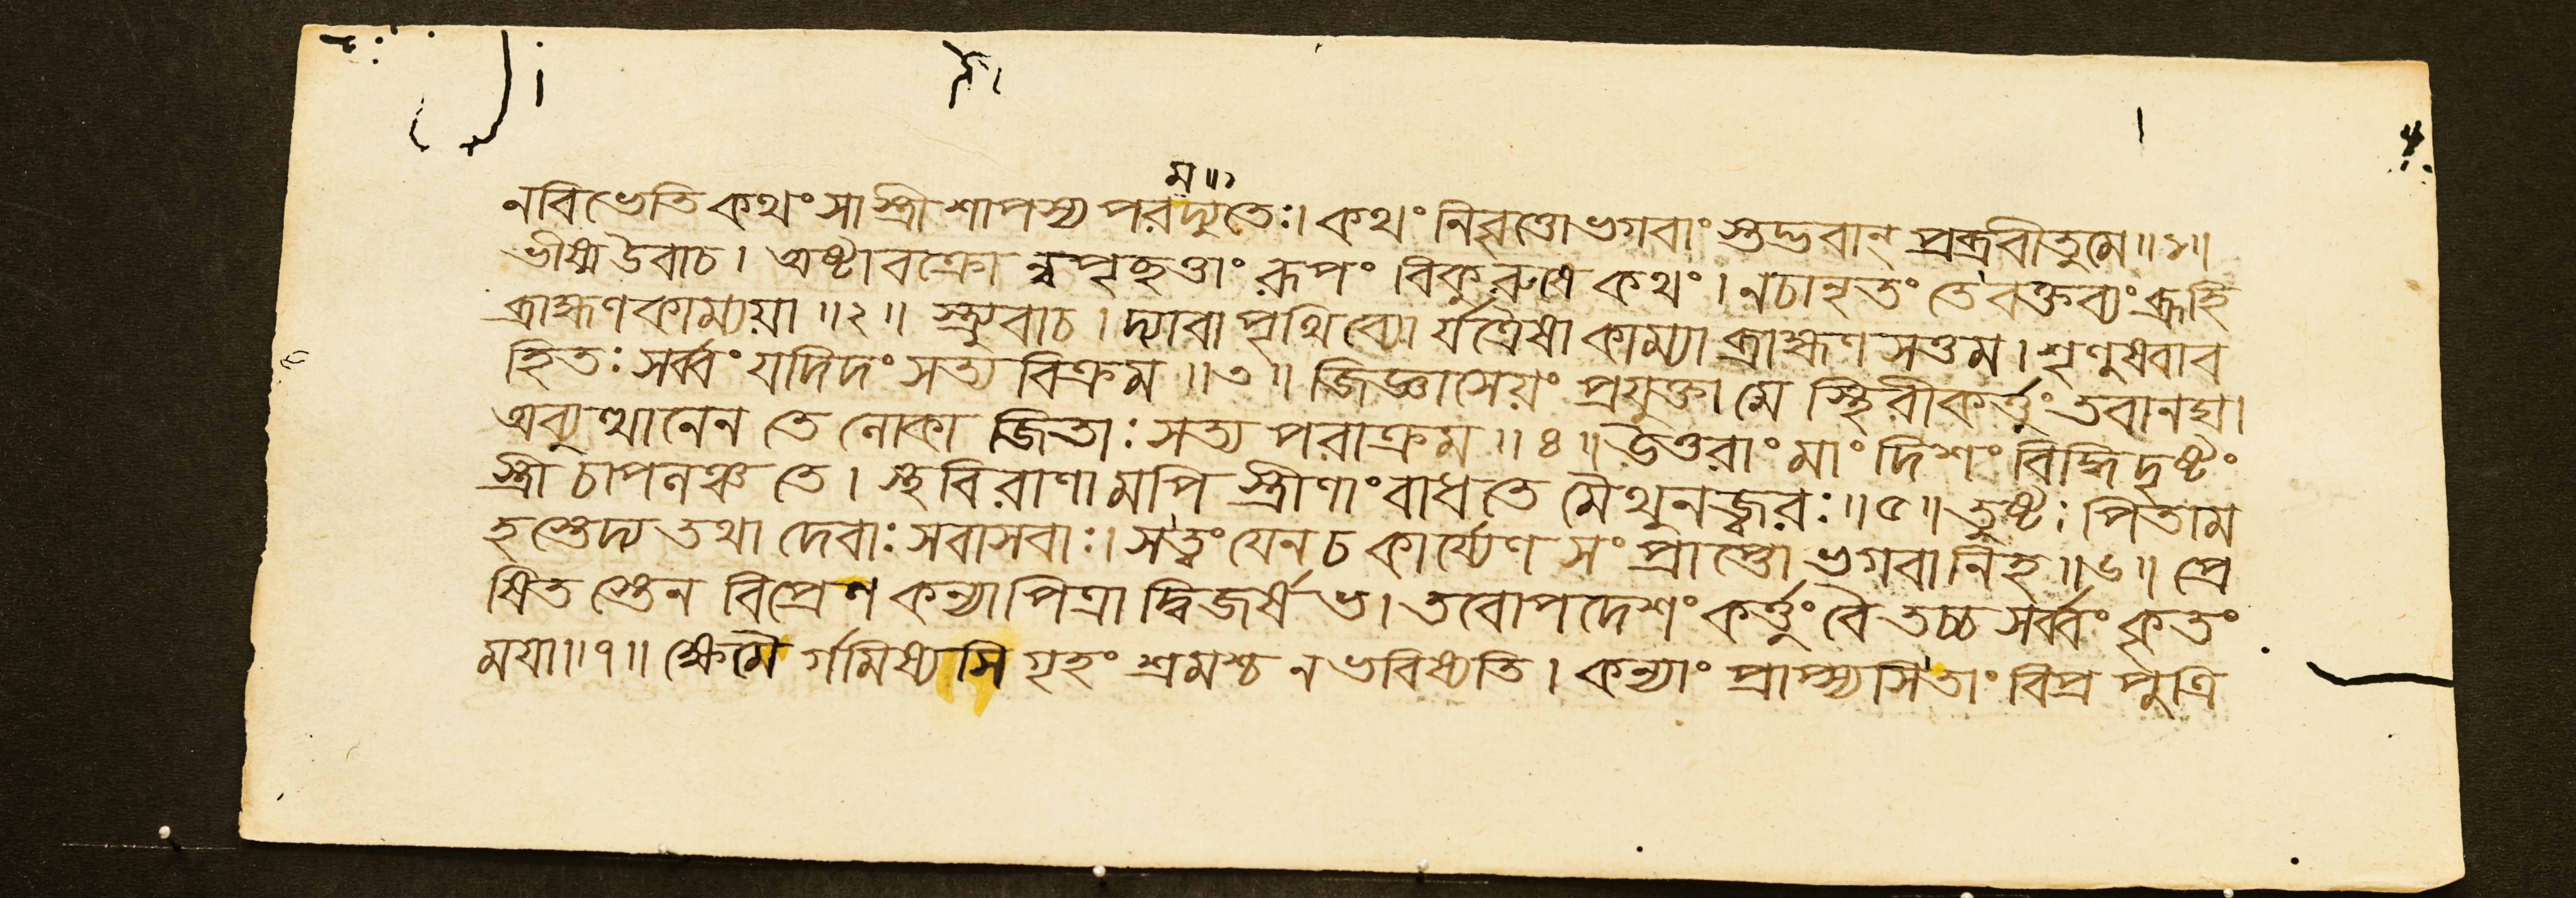 ম॥১
নবিভেতি কথং সা স্ত্রী শাপস্য পরদ্যুতেঃ। কথং নিবৃত্তো ভগবাং স্তদ্ভবান্ প্রব্রবীতুমে॥১॥
ভীষ্ম উবাচ। অষ্টাবক্রো ন্বপৃচ্ছত্তাং রূপং বিকুরুষে কথং। নচানৃতং তে বক্তব্যং ব্রূহি
ব্রাহ্মণকাম্যয়া॥২॥ স্ত্র্যুবাচ। দ্যাবাপৃথিব্যো র্যত্রৈষা কাম্যা ব্রাহ্মণসত্তম। শৃণুষ্বাব
হিতঃ সর্ব্বং যদিদং সত্যবিক্রম॥৩॥ জিজ্ঞাসেয়ং প্রযুক্তা মে স্থিরীকর্ত্তুং তবানঘ।
অব্যুত্থানেন তে লোকা জিতাঃ সত্যপরাক্রম॥৪॥ উত্তরাং মাং দিশং বিদ্ধি দৃষ্টং
স্ত্রীচাপলঞ্চ তে। স্থবিরাণামপি স্ত্রীণাং বাধতে মৈথুনজ্বরঃ॥৫॥ তুষ্টঃ পিতাম
হস্তেদ্য তথা দেবাঃ সবাসবাঃ। সত্বং যেন চ কার্য্যেণ সংপ্রাপ্তো ভগবানিহ॥৬॥ প্রে
ষিতস্তেন বিপ্রেণ কন্যাপিত্রা দ্বিজর্ষভ। তবোপদেশং কর্ত্তুং বৈ তচ্চ সর্ব্বং কৃতং
ময়া॥৭॥ ক্ষেমৈ র্গমিষ্যসি গৃহং শ্রমশ্চ ন ভবিষ্যতি। কন্যাং প্রাপ্স্যসি তাং বিপ্র পুত্রি